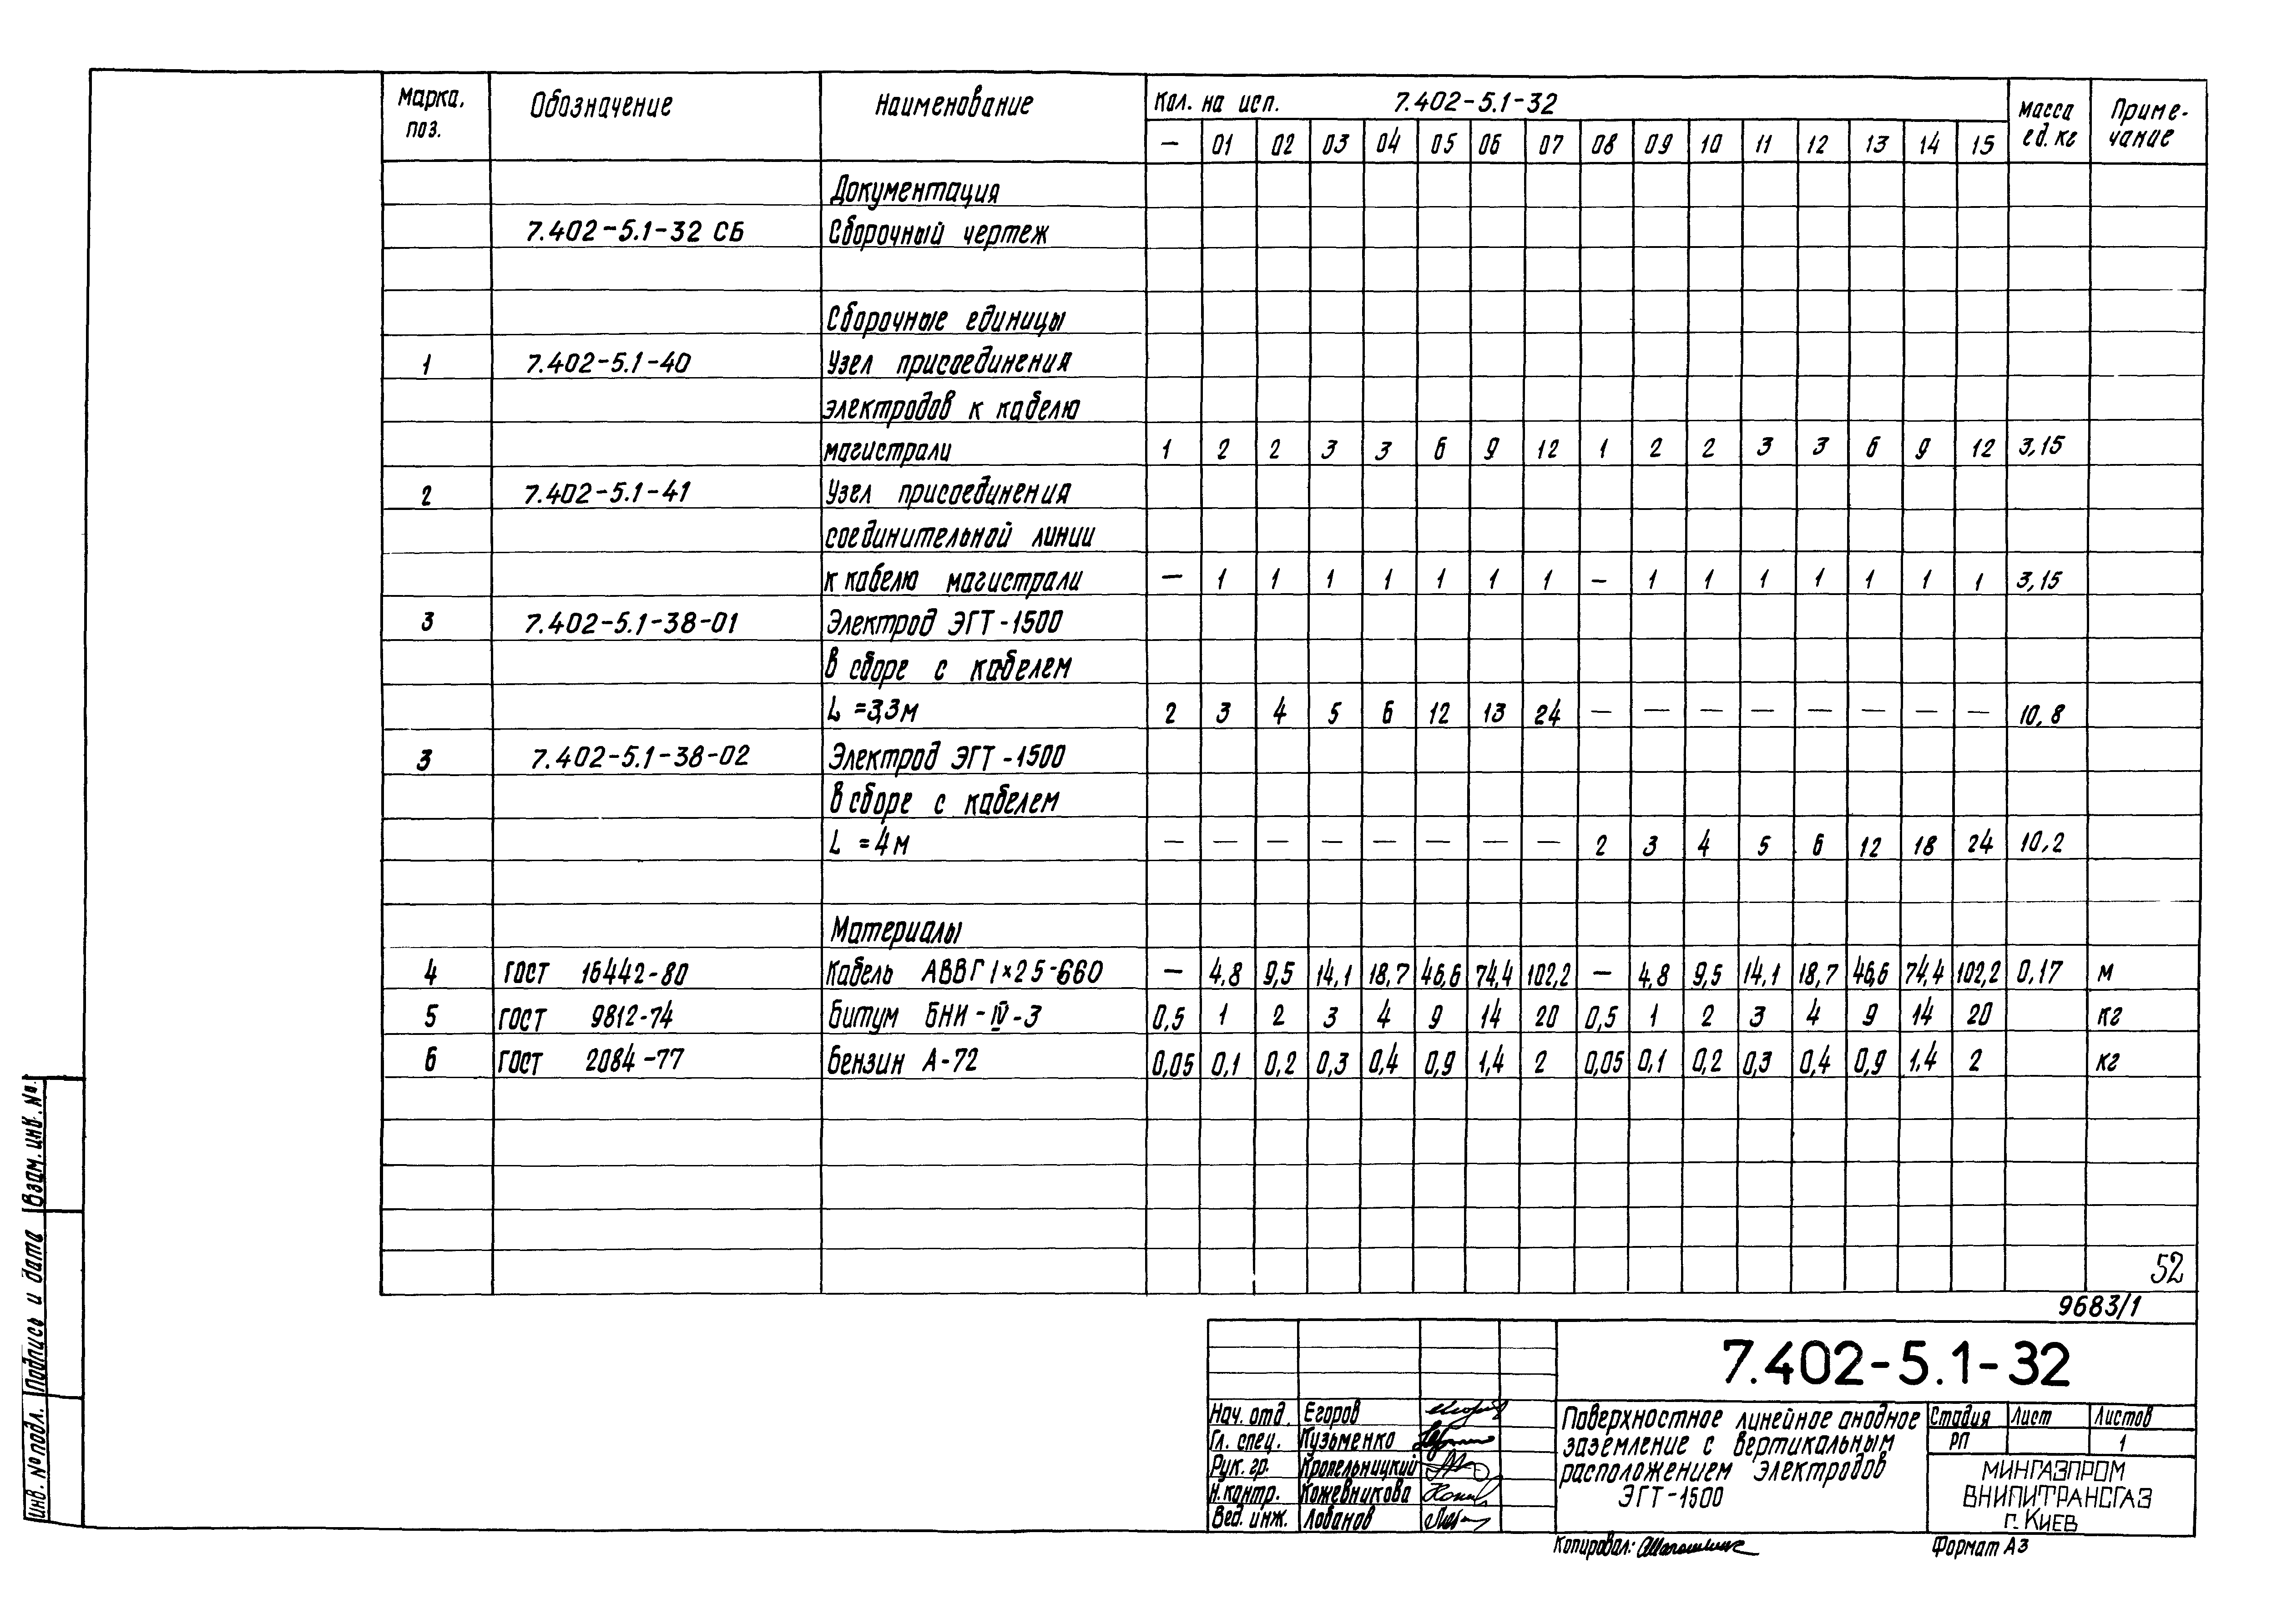 Марка, поз. Обозначение Наименование Кол. на исп. 7.402-5.1-32 Масса ед. кг Приме-чание
— 01 02 03 04 05 06 07 08 09 10 11 12 13 14 15
Документация
7.402-5.1-32 СБ Сборочный чертеж
Сборочные единицы
1 7.402-5.1-40 Узел присоединения
электродов к кабелю
магистрали 1 2 2 3 3 6 9 12 1 2 2 3 3 6 9 12 3,15
2 7.402-5.1-41 Узел присоединения
соединительной линии
к кабелю магистрали — 1 1 1 1 1 1 1 — 1 1 1 1 1 1 1 3,15
3 7.402-5.1-38-01 Электрод ЭГТ-1500
в сборе с кабелем
L =3,3м 2 3 4 5 6 12 13 24 — — — — — — — — 10,8
3 7.402-5.1-38-02 Электрод ЭГТ-1500
в сборе с кабелем
L =4м — — — — — — — — 2 3 4 5 6 12 18 24 10,2
Материалы
4 ГОСТ 16442-80 Кабель АВВГ 1×25-660 — 4,8 9,5 14,1 18,7 46,6 74,4 102,2 — 4,8 9,5 14,1 18,7 46,6 74,4 102,2 0,17 м
5 ГОСТ 9812-74 Битум БНИ-IV-3 0,5 1 2 3 4 9 14 20 0,5 1 2 3 4 9 14 20 кг
6 ГОСТ 2084-77 Бензин А-72 0,05 0,1 0,2 0,3 0,4 0,9 1,4 2 0,05 0,1 0,2 0,3 0,4 0,9 1,4 2 кг
52
9683/1
7.402-5.1-32
Нач. отд. Егоров
Гл. спец. Кузьменко
Рук. гр. Кропельницкий
Н. контр. Кожевникова
Вед. инж. Лобанов
Поверхностное линейное анодное
заземление с вертикальным
расположением электродов
ЭГТ-1500
Стадия Лист Листов
РП 1
МИНГАЗПРОМ
ВНИПИТРАНСГАЗ
г. Киев
Копировал: Формат А3
Инв. № подл. Подпись и дата Взам. инв. №